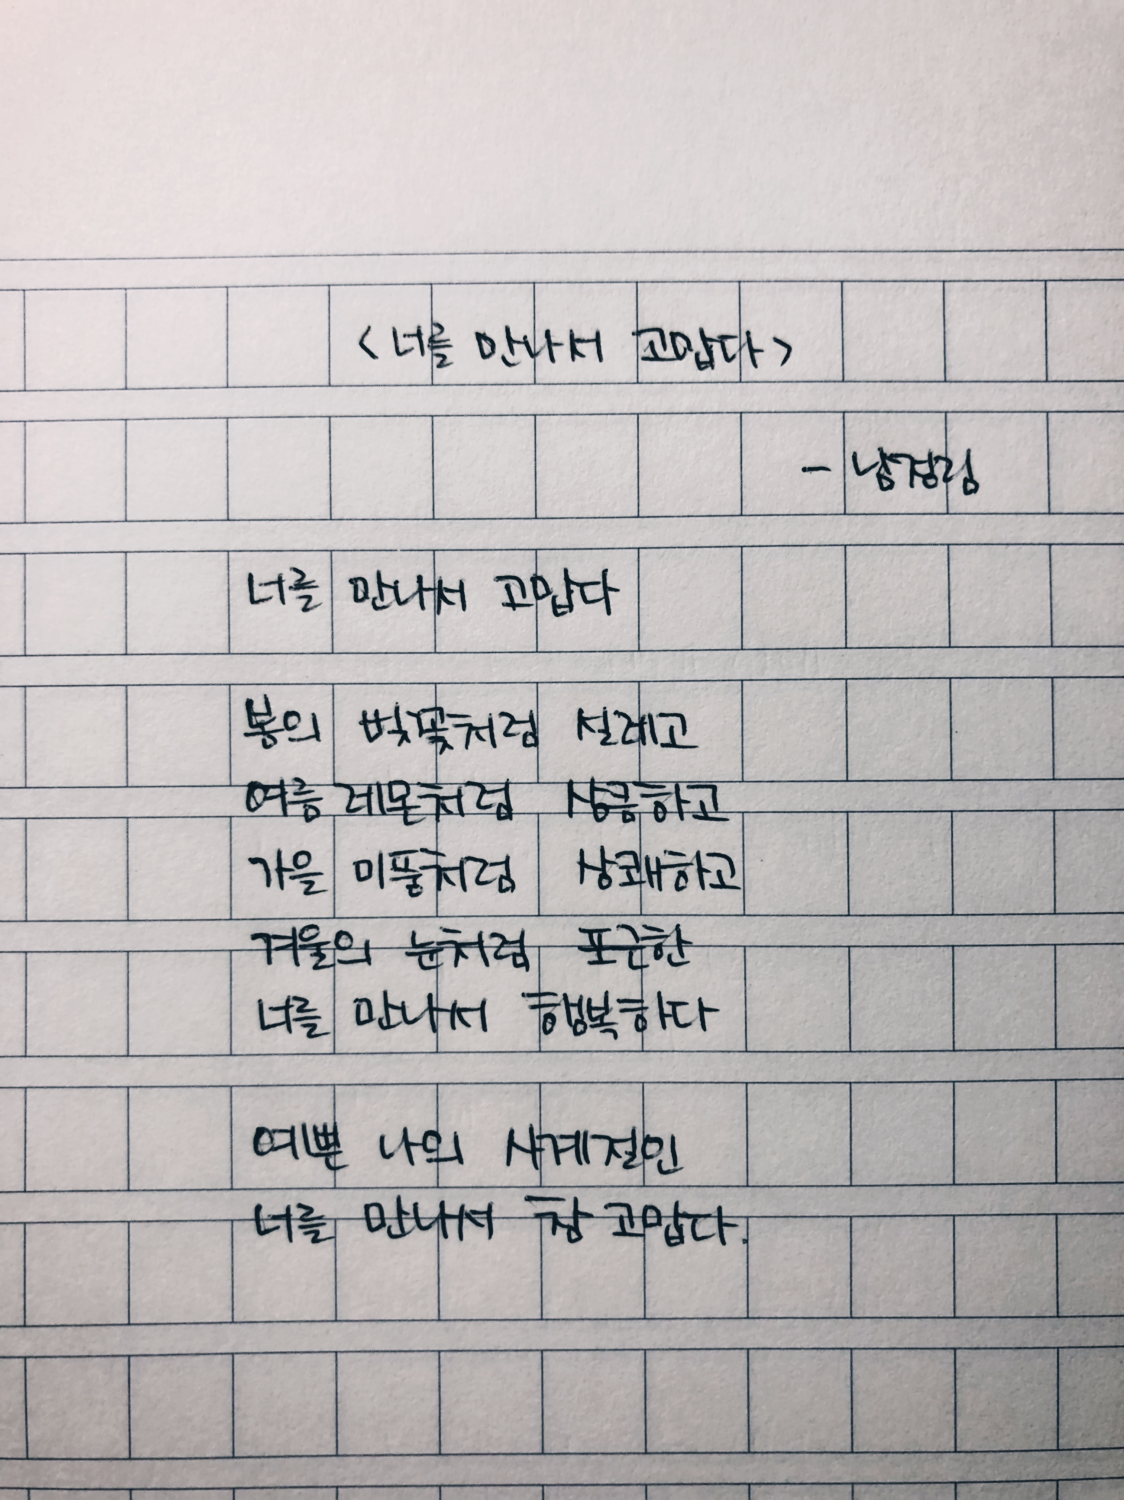 <너를 만나서 고맙다>
- 남정림
너를 만나서 고맙다
봄의 벚꽃처럼 설레고
여름 레몬처럼 상큼하고
가을 미풍처럼 상쾌하고
겨울의 눈처럼 포근한
너를 만나서 행복하다
예쁜 나의 사계절인
너를 만나서 참 고맙다.